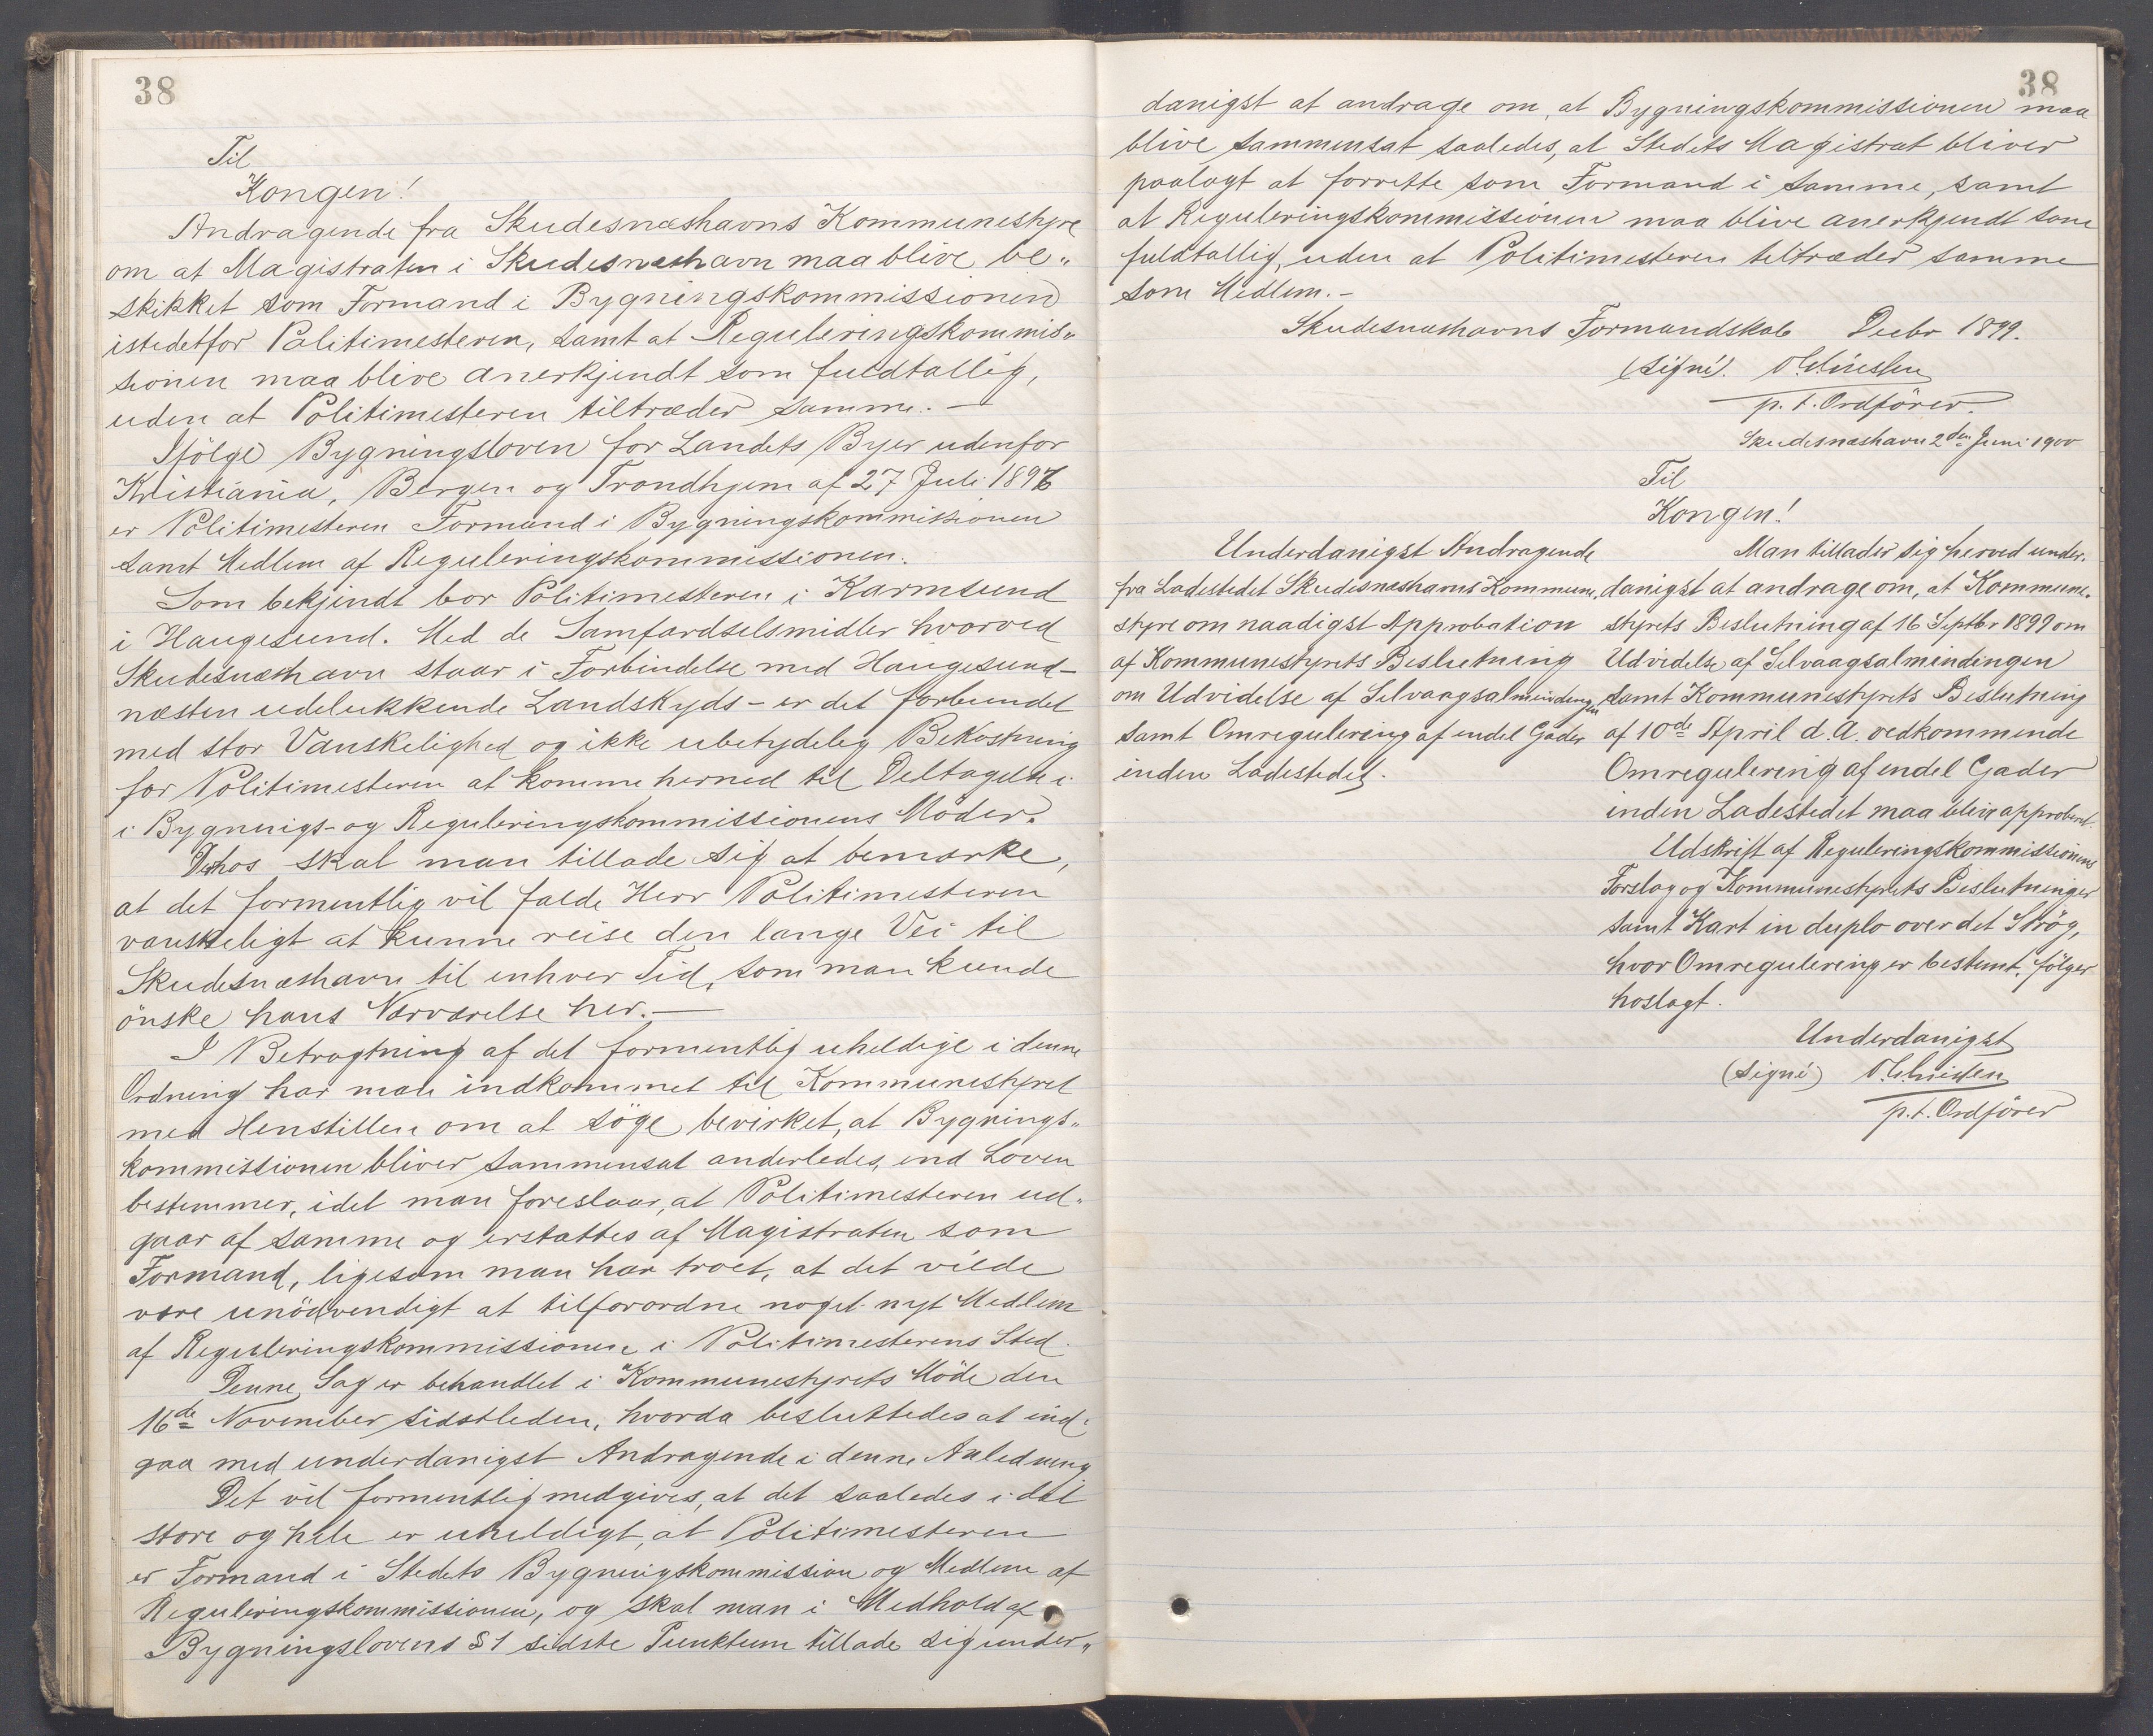 38
Til
Kongen!
Andragende fra Skudesnæshavns Kommunestyre
om at Magistraten i Skudesnæshavn maa blive be„
skikket som Formand i Bygningskommissionen
istedetfor Politimesteren, samt at Reguleringskommis„
sionen maa blive anerkjendt som fuldtallig,
uden at Politimesteren tiltræder samme. —
Ifölge Bygningsloven for Landets Byer udenfor
Kristiania, Bergen og Trondhjem af 27 Juli 1896
er Politimesteren Formand i Bygningskommissionen
samt Medlem af Reguleringskommissionen.
Som bekjendt bor Politimesteren i Karmsund
i Haugesund. Med de Samfærdselsmidler hvorved
Skudesnæshavn staar i Forbindelse med Haugesund –
næsten udelukkende Landskyds – er det forbundet
med stor Vanskelighed og ikke ubetydelig Bekostning
for Politimesteren at komme herned til Deltagelse i
i Bygnings- og Reguleringskommissionens Möder.
Derhos skal man tillade sig at bemærke,
at det formentlig vil falde Herr Politimesteren
vanskeligt at kunne reise den lange Vei til
Skudesnæshavn til enhver Tid, som man kunde
önske hans Nærværelse her. —
I Betragtning af det formentlig uheldige i denne
Ordning har man indkommet til Kommunestyret
med Henstillen om at söge bevirket, at Bygnings„
kommissionen bliver sammensat anderledes, end Loven
bestemmer, idet man foreslaar, at Politimesteren ud„
gaar af samme og erstattes af Magistraten som
Formand, ligesom man har troet, at det vilde
være unödvendigt at tilforordne noget nyt Medlem
af Reguleringskommissionen i Politimesterens Sted.
Denne Sag er behandlet i Kommunestyrets Möde den
16de November sidstleden, hvorda besluttedes at ind„
gaa med underdanigst Andragende i denne Anledning
Det vil formentlig medgives, at det saaledes i det
store og hele er uheldigt, at Politimesteren
er Formand i Stedets Bygningskommission og Medlem af
Reguleringskommissionen, og skal man i Medhold af
Bygningslovens § 1 sidste Punktum tillade sig under„
38
danigst at andrage om, at Bygningskommissionen maa
blive sammensat saaledes, at Stedets Magistrat bliver
paalagt at forrette som Formand i samme, samt
at Reguleringskommissionen maa blive anerkjendt som
fuldtallig, uden at Politimesteren tiltræder samme
som Medlem. –
Skudesnæshavns Formandskab Decbr 1899.
(sigń).
p. t. Ordförer.
Skudesnæshavn 2den Juni 1900
Til
Kongen!
Underdanigst Andragende
fra Ladestedet Skudesnæshavns Kommune„
styre om naadigst Approbation
af Kommunestyrets Beslutning
om Udvidelse af Selvaagsalmindingen
samt Omregulering af endel Gader
inden Ladestedet.
Man tillader sig herved under„
danigst at andrage om, at Kommune„
styrets Beslutning af 16 Septbr 1899 om
Udvidelse af Selvaagsalmindingen
samt Kommunestyrets Beslutning
af 10de April d. A. vedkommende
Omregulering af endel Gader
inden Ladestedet maa blive approberet.
Udskrift af Reguleringskommissionens
Forslag og Kommunestyrets Beslutninger
samt Kart in duplo over det Strög,
hvor Omregulering er bestemt, fölger
hoslagt.
Underdanigst
(signé)
p. t. Ordförer